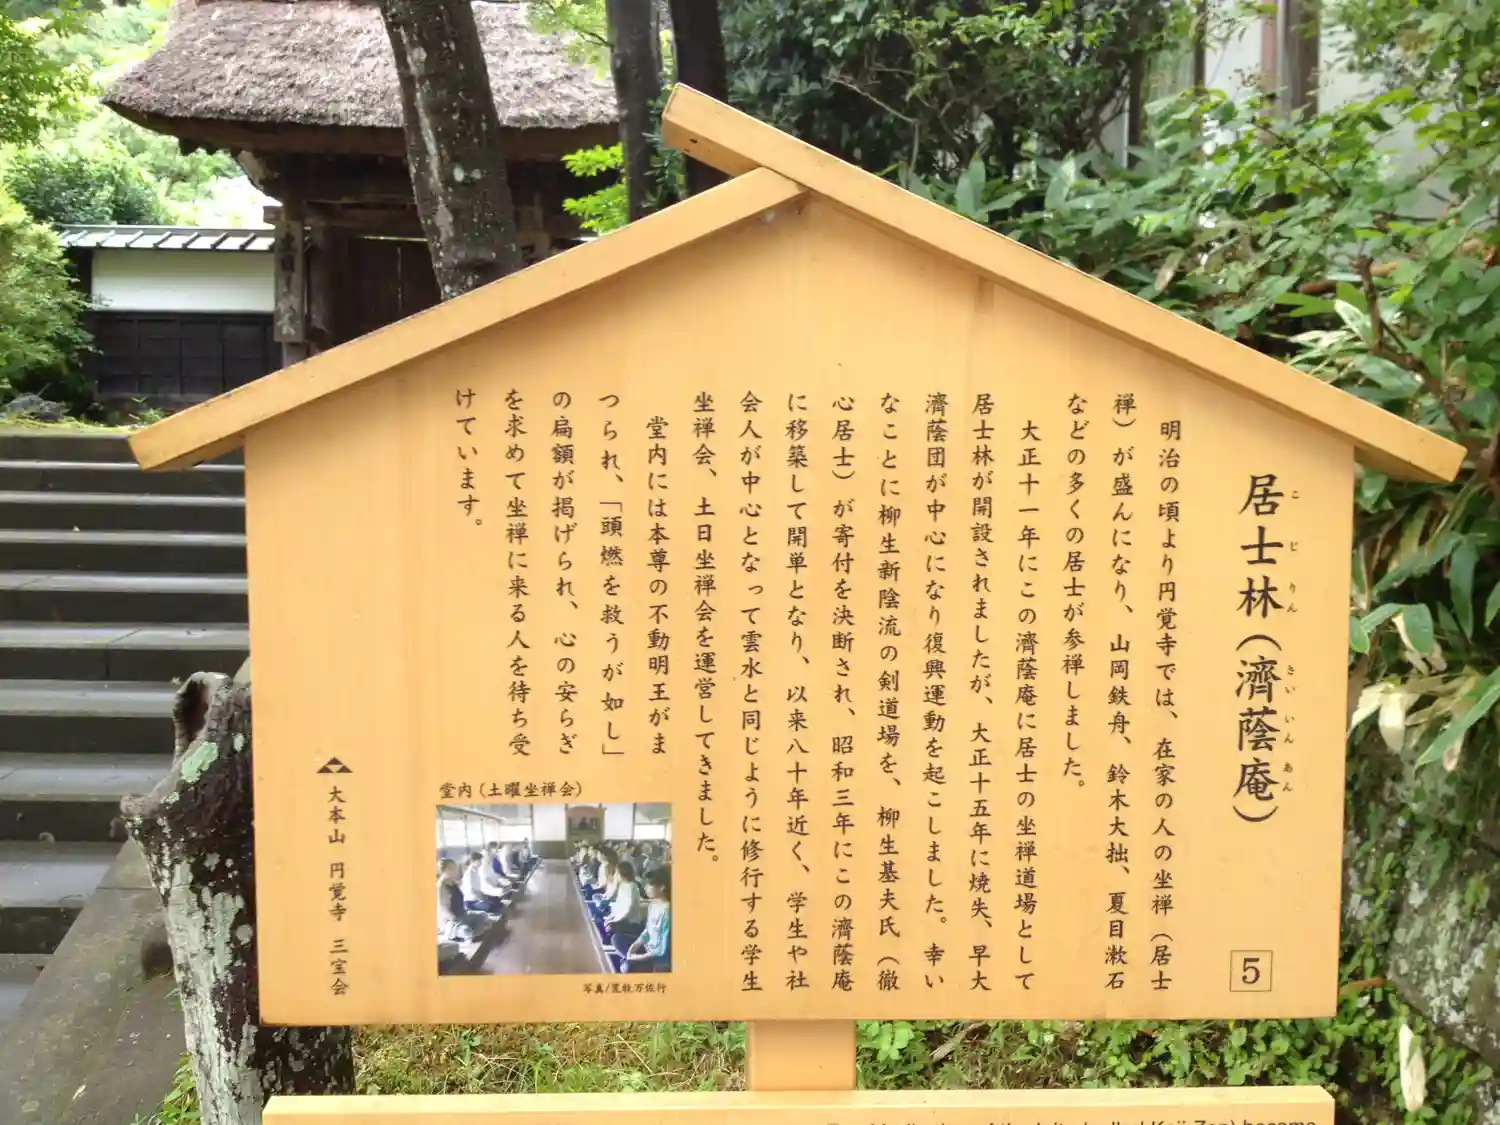 居士林(濟蔭庵)
こ じ りん さい いん あん
明治の頃より円覚寺では、在家の人の坐禅(居士
禅)が盛んになり、山岡鉄舟、鈴木大拙、夏目漱石
などの多くの居士が参禅しました。
大正十一年にこの濟蔭庵に居士の坐禅道場として
居士林が開設されましたが、大正十五年に焼失、早大
濟蔭団が中心になり復興運動を起こしました。幸い
なことに柳生新陰流の剣道場を、柳生基夫氏(徹
心居士)が寄付を決断され、昭和三年にこの濟蔭庵
に移築して開単となり、以来八十年近く、学生や社
会人が中心となって雲水と同じように修行する学生
坐禅会、土日坐禅会を運営してきました。
堂内には本尊の不動明王がま
つられ、「頭燃を救うが如し」
の扁額が掲げられ、心の安らぎ
を求めて坐禅に来る人を待ち受
けています。
堂内(土曜坐禅会)
写真/荒牧万佐行
大本山 円覚寺 三宝会
5